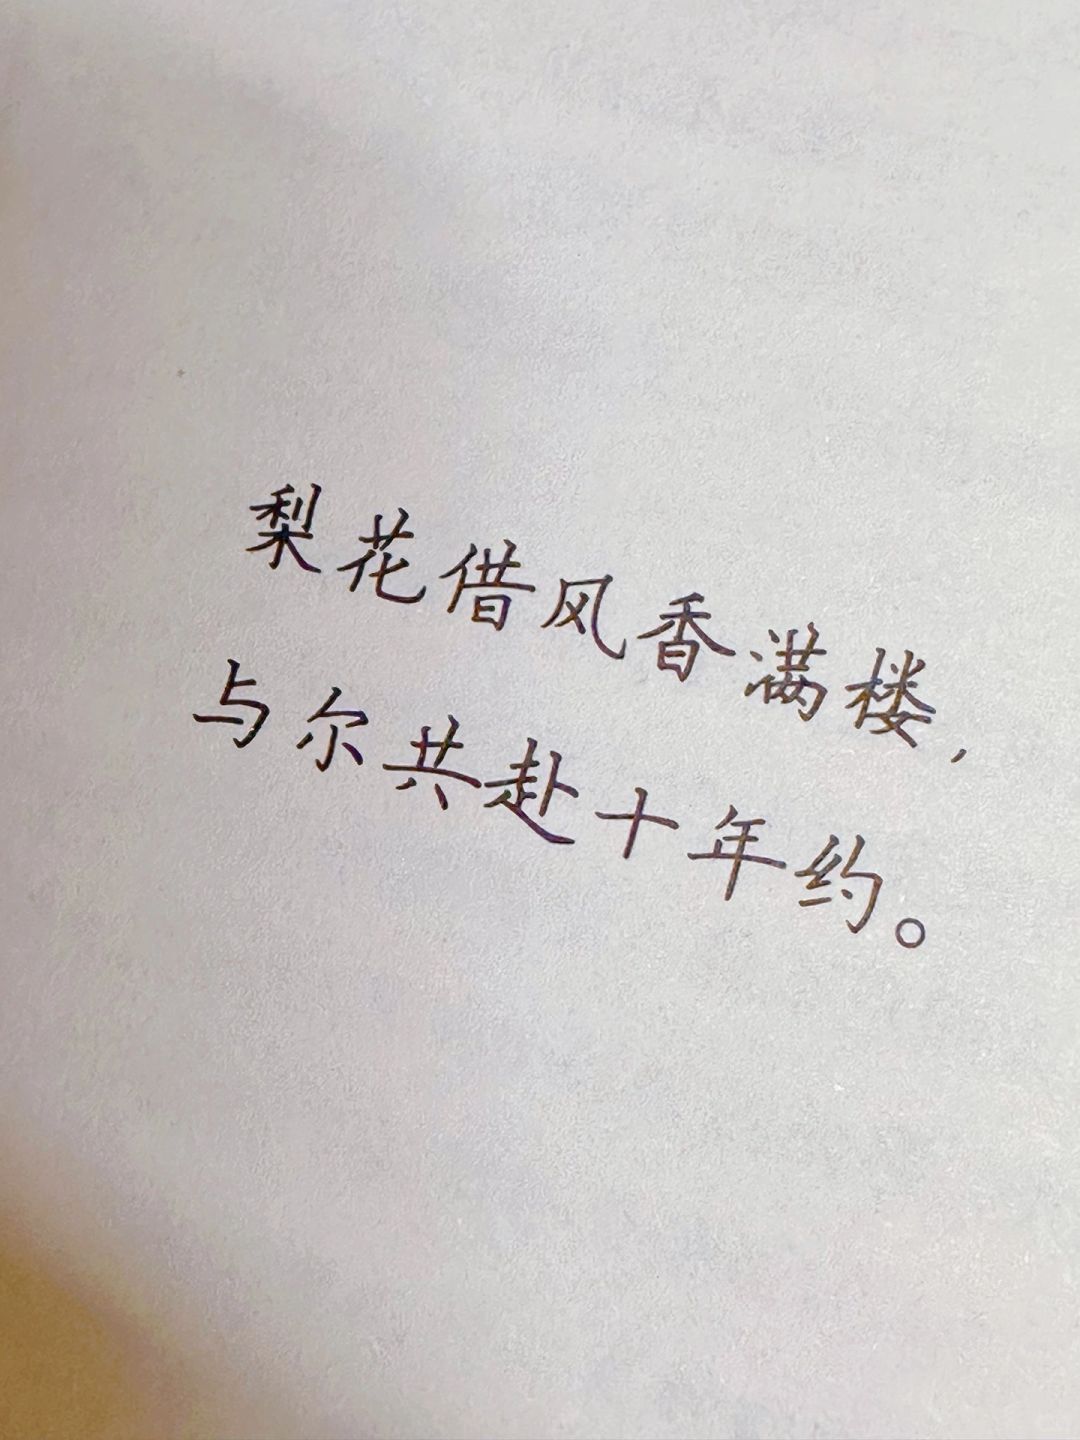 梨花借风香满楼,
与尔共赴十年约。